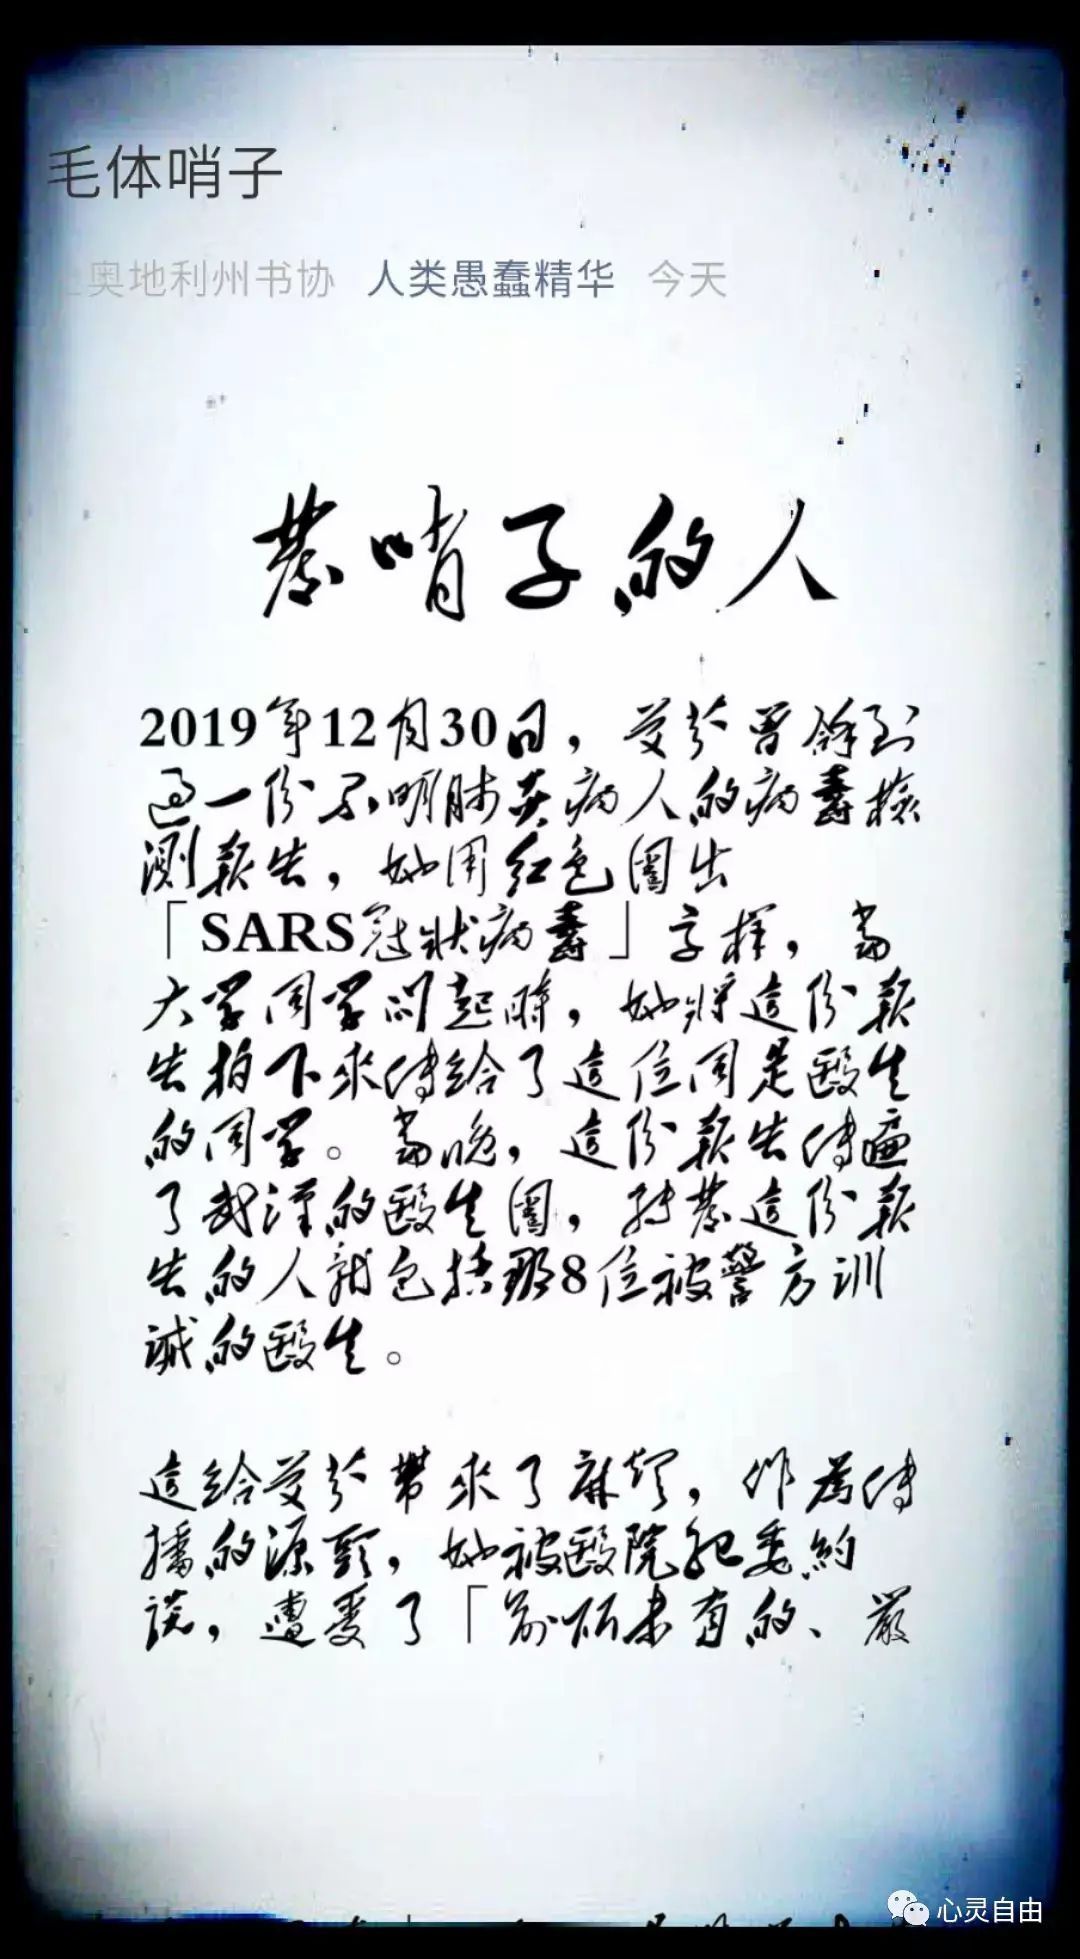 毛体哨子
奥地利州书协 人类愚蠢精华 今天
發哨子的人
2019年12月30日，艾芬曾拿到
過一份不明肺炎病人的病毒檢
測報告，她用紅色圈出
「SARS冠狀病毒」字樣，當
大學同學問起時，她將這份報
告拍下來傳給了這位同是醫生
的同學。當晚，這份報告傳遍
了武漢的醫生圈，轉發這份報
告的人就包括那8位被警方訓
誡的醫生。
這給艾芬帶來了麻煩，作為傳
播的源頭，她被醫院紀委約
談，遭受了「前所未有的、嚴
心灵自由